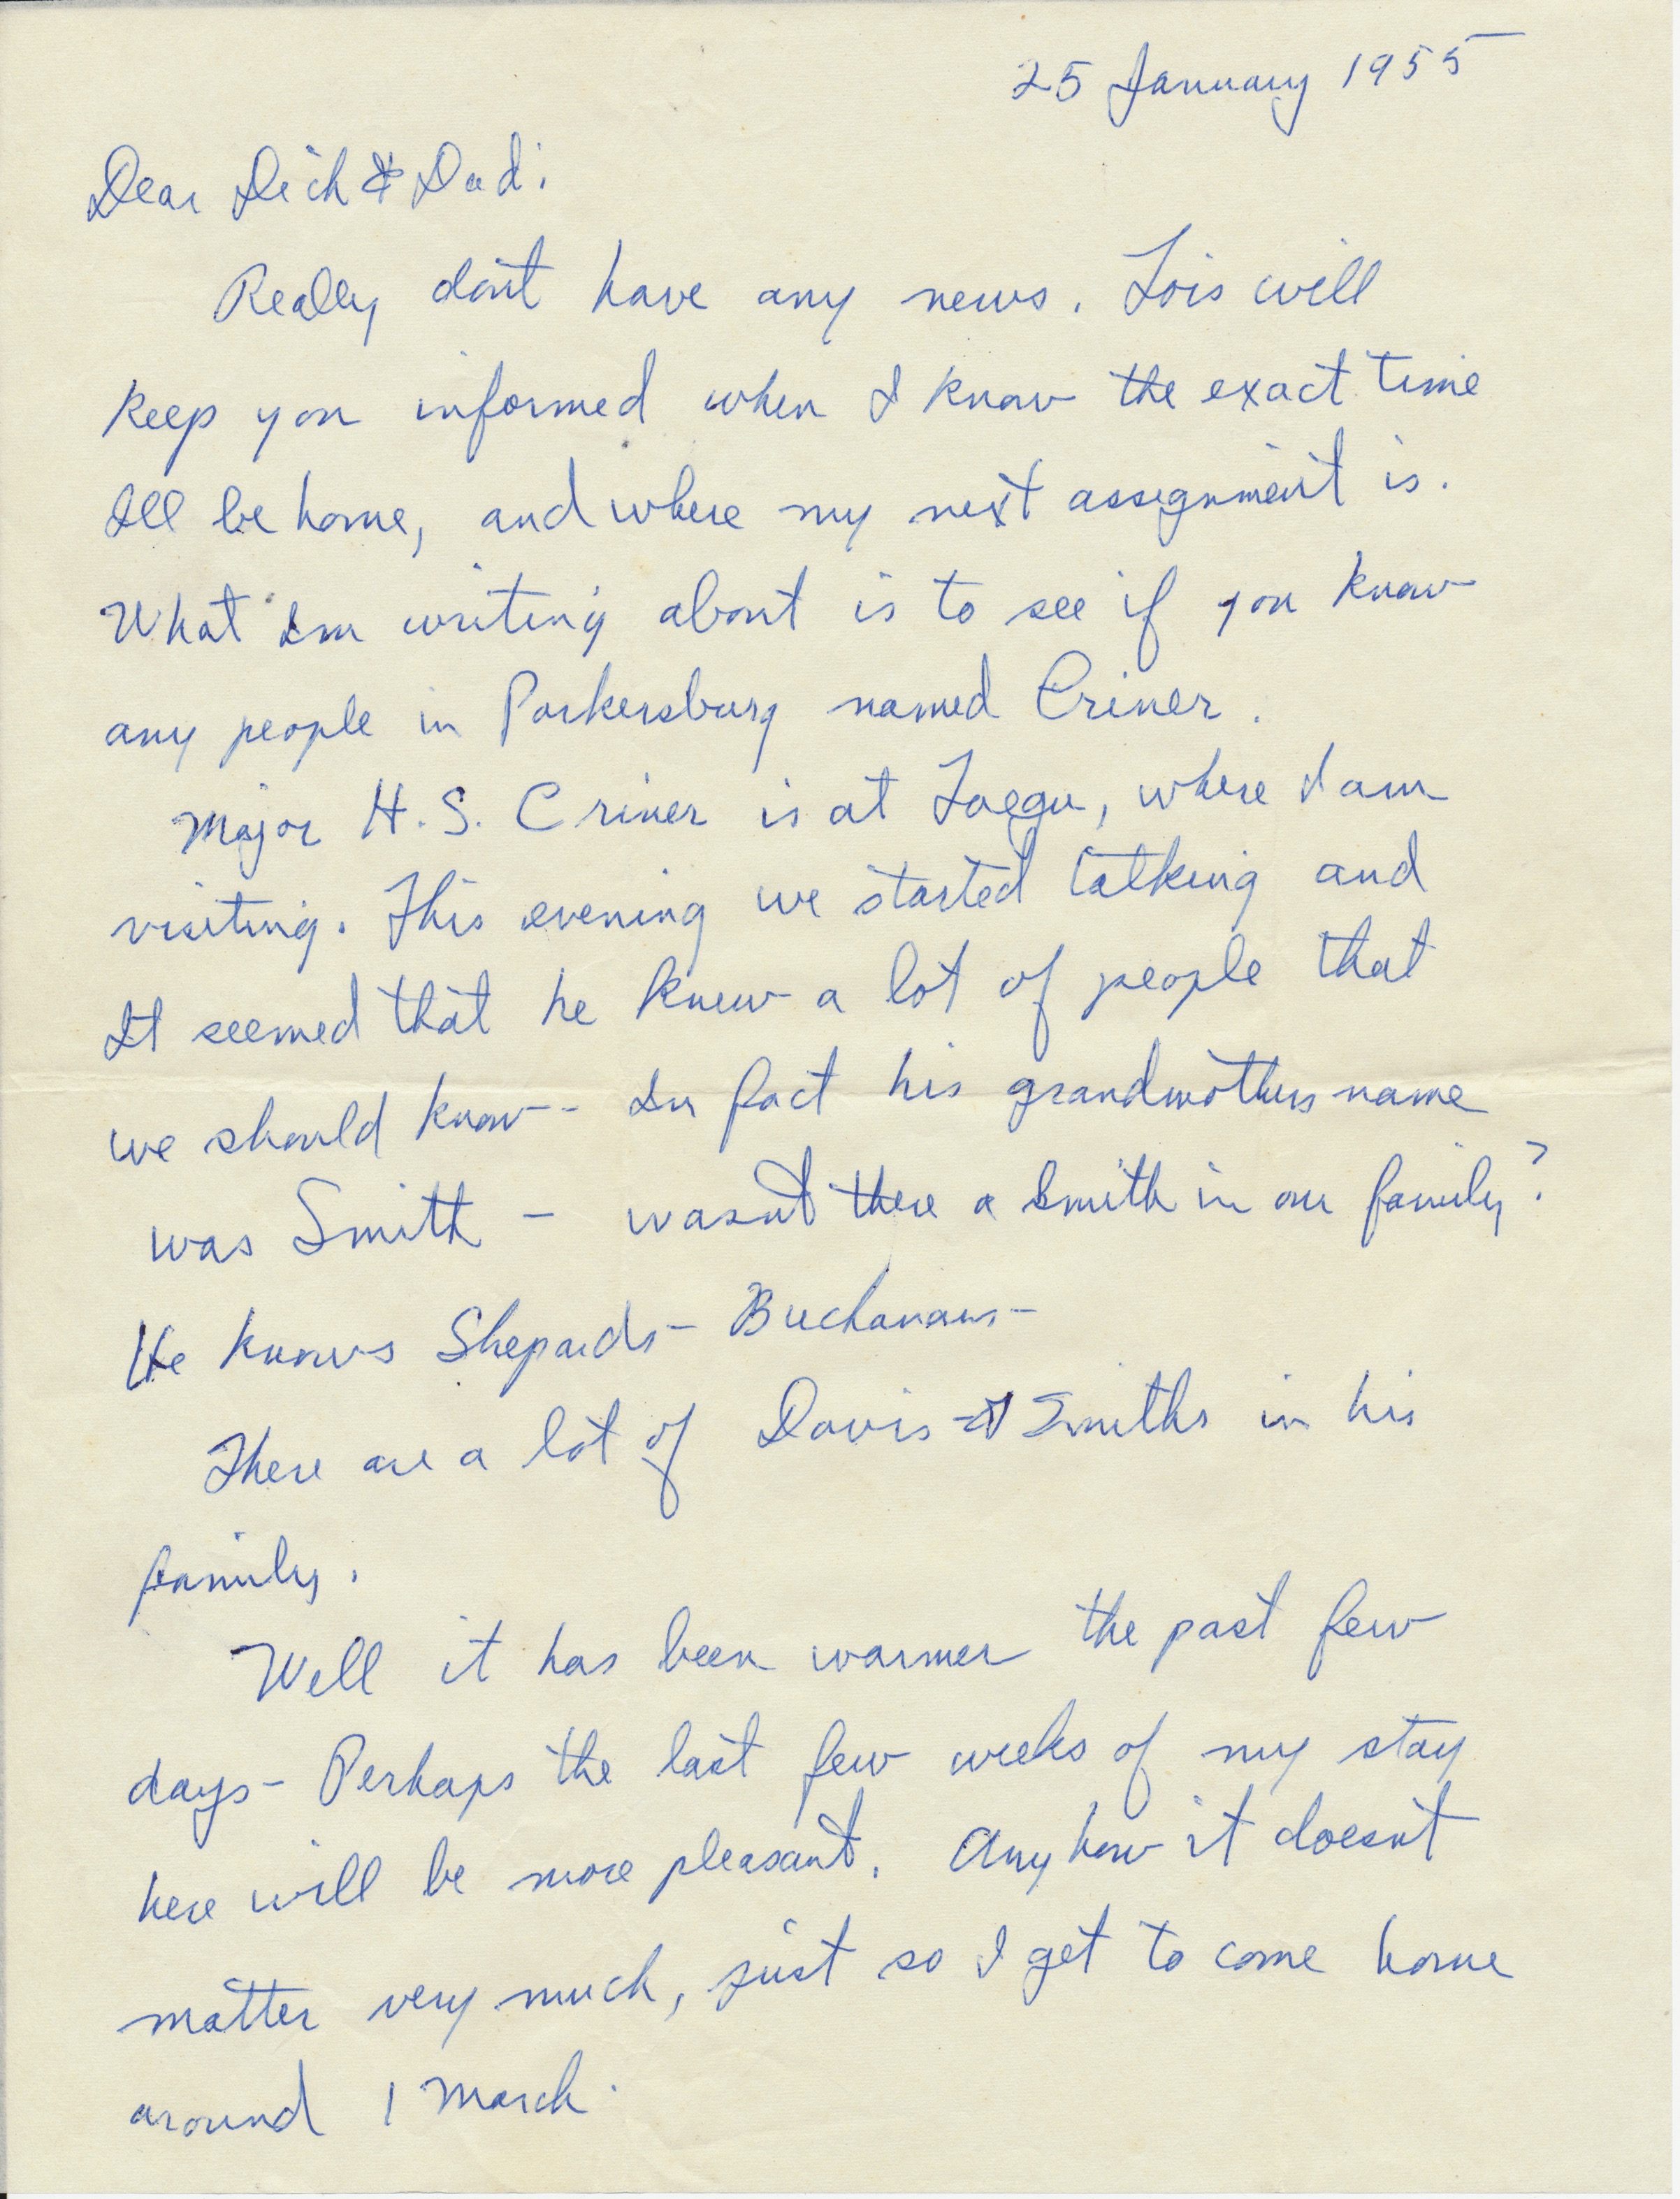 25 January 1955
Dear Dick & Dad:
Really don't have any news. Lois will
keep you informed when I know the exact time
I'll be home, and where my next assignment is.
What I'm writing about is to see if you know
any people in Parkersburg named Criner.
Major H.S. Criner is at Taegu, where I am
visiting. This evening we started talking and
It seemed that he knew a lot of people that
we should know-- In fact his grandmothers name
was Smith - wasn't there a Smith in our family?
He knows Shepards - Buchanans -
There are a lot of Davis & Smiths in his
family.
Well it has been warmer the past few
days - Perhaps the last few weeks of my stay
here will be more pleasant. Anyhow it doesn't
matter very much, just so I get to come home
around 1 March.